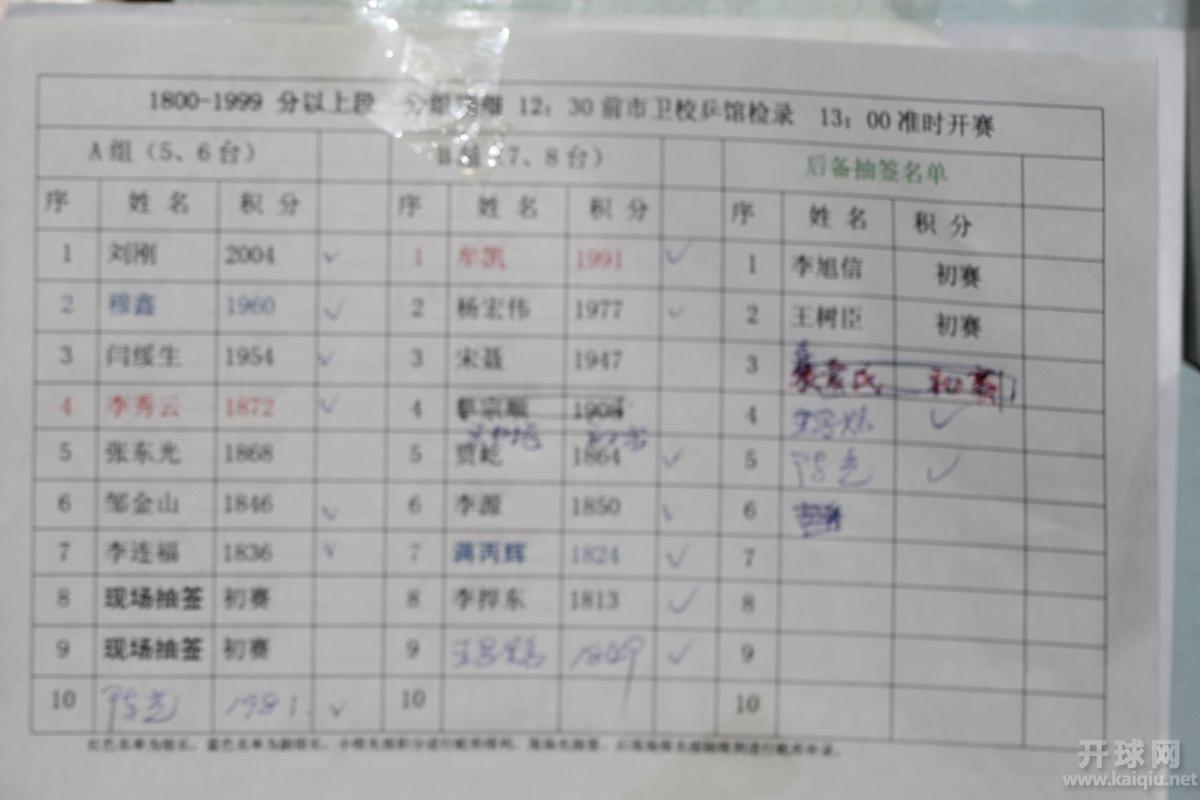 1800-1999 分以上段 分组 12：30前市卫校乒馆检录 13：00准时开赛
A组（5、6台） B组（7、8台） 后备抽签名单
序 姓名 积分 序 姓名 积分 序 姓名 积分
1 刘刚 2004 ✓ 1 牟凯 1991 ✓ 1 李旭信 初赛
2 穆鑫 1960 ✓ 2 杨宏伟 1977 ✓ 2 王树臣 初赛
3 闫绥生 1954 ✓ 3 宋聂 1947 3 初赛
4 李秀云 1872 ✓ 4 宗顺 1904 4 ✓
5 张东光 1868 5 贾屹 1864 ✓ 5 陈光 ✓
6 邹金山 1846 ✓ 6 李源 1850 ✓ 6
7 李连福 1836 ✓ 7 蒋丙辉 1824 ✓ 7
8 现场抽签 初赛 8 李捍东 1813 ✓ 8
9 现场抽签 初赛 9 1849 ✓ 9
10 陈光 1981. ✓ 10 10
开球网
www.kaiqiu.net